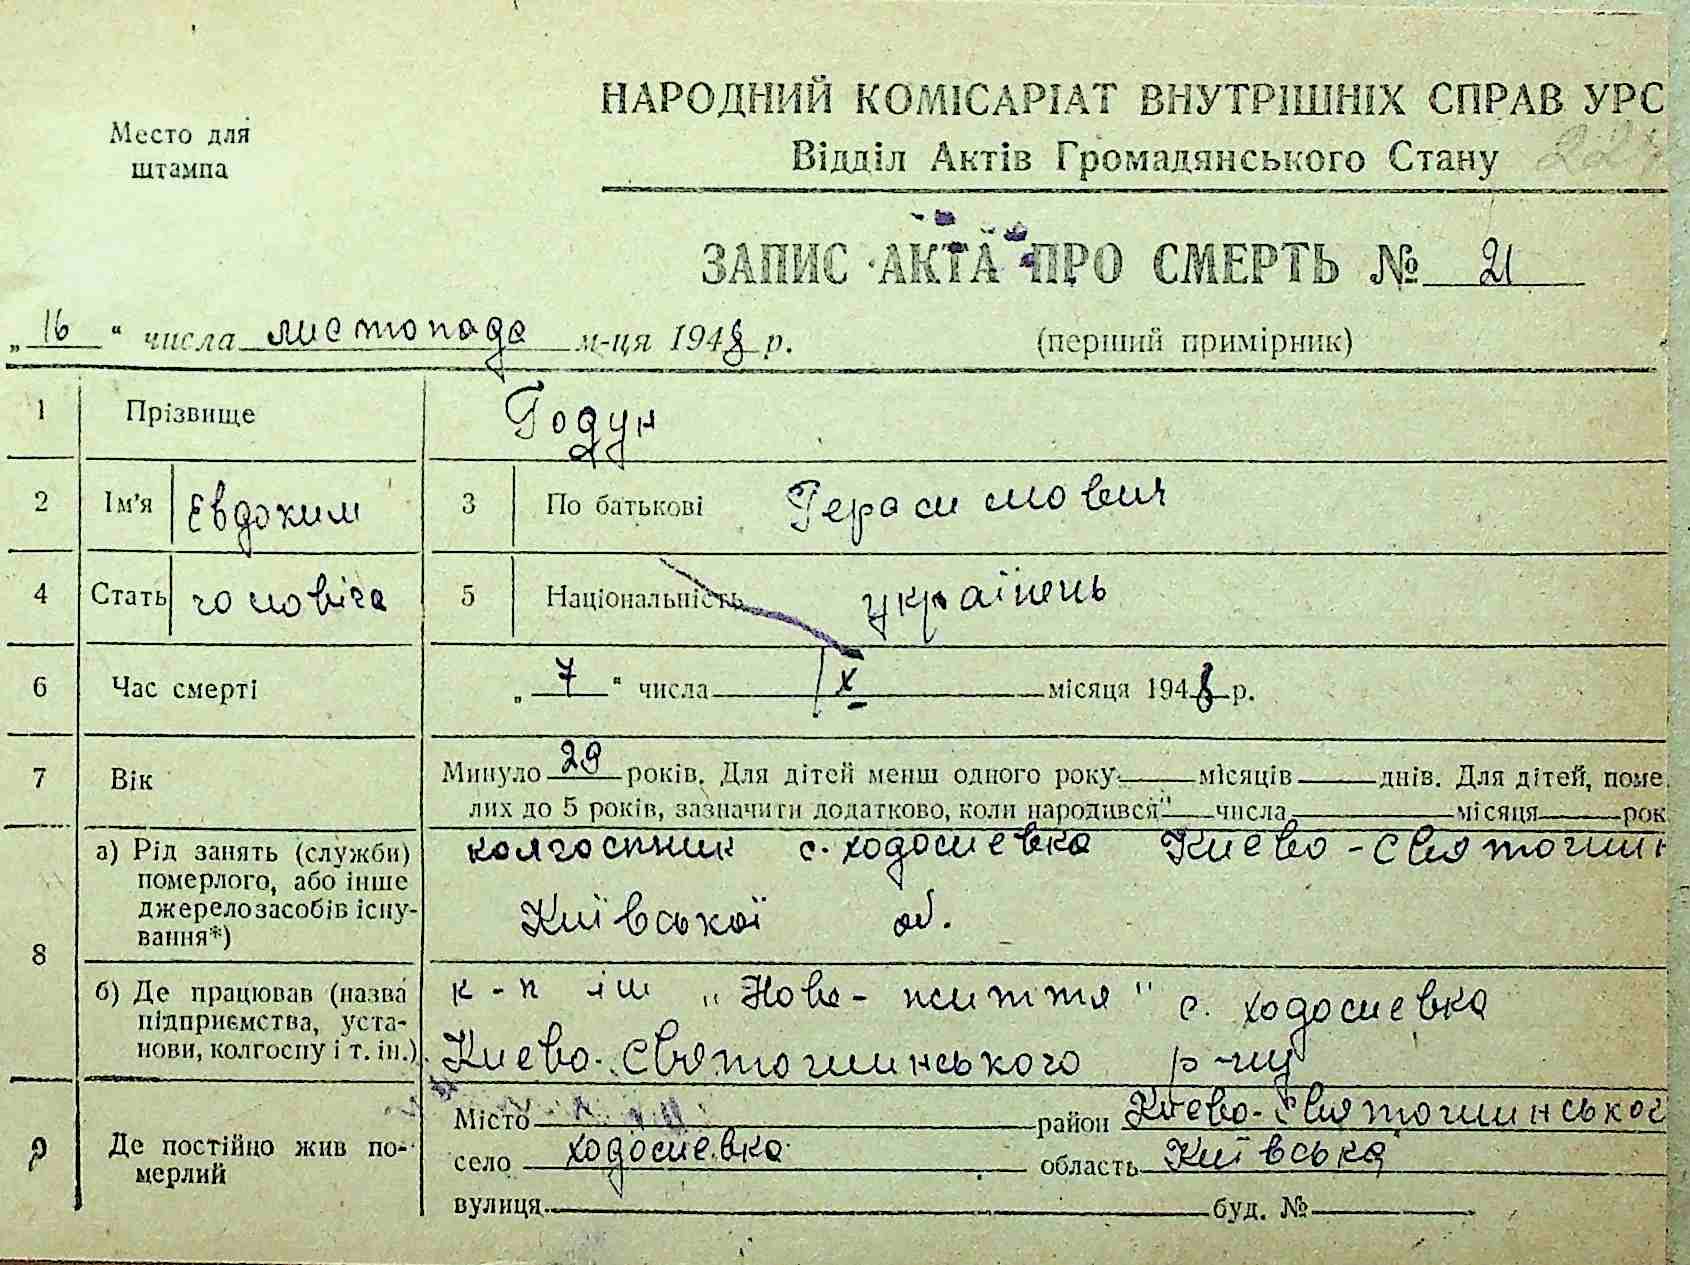 Место для
штампа
НАРОДНИЙ КОМІСАРІАТ ВНУТРІШНІХ СПРАВ УРС
Відділ Актів Громадянського Стану
ЗАПИС АКТА ПРО СМЕРТЬ № 21
„ 16 “ числа листопада м-ця 1948 р. (перший примірник)
1 Прізвище Годун
2 Ім'я Евдоким 3 По батькові Герасимович
4 Стать чоловіча 5 Національність українець
6 Час смерті „ 7 “ числа ІХ місяця 1948 р.
7 Вік Минуло 29 років. Для дітей менш одного року місяців днів. Для дітей, поме
лих до 5 років, зазначити додатково, коли народився" числа місяця рок
8 а) Рід занять (служби) померлого, або інше джерело засобів існування*) колгоспник с. ходосиевка Киево-Святошин
Київської об.
б) Де працював (назва підприємства, установи, колгоспу і т. ін.) к-п ім „Нове-життя" с. ходосиевка
Киево-Святошинського р-ну
9 Де постійно жив померлий Місто район Киево-Святошинської
село ходосиевка область Київська
вулиця буд. №